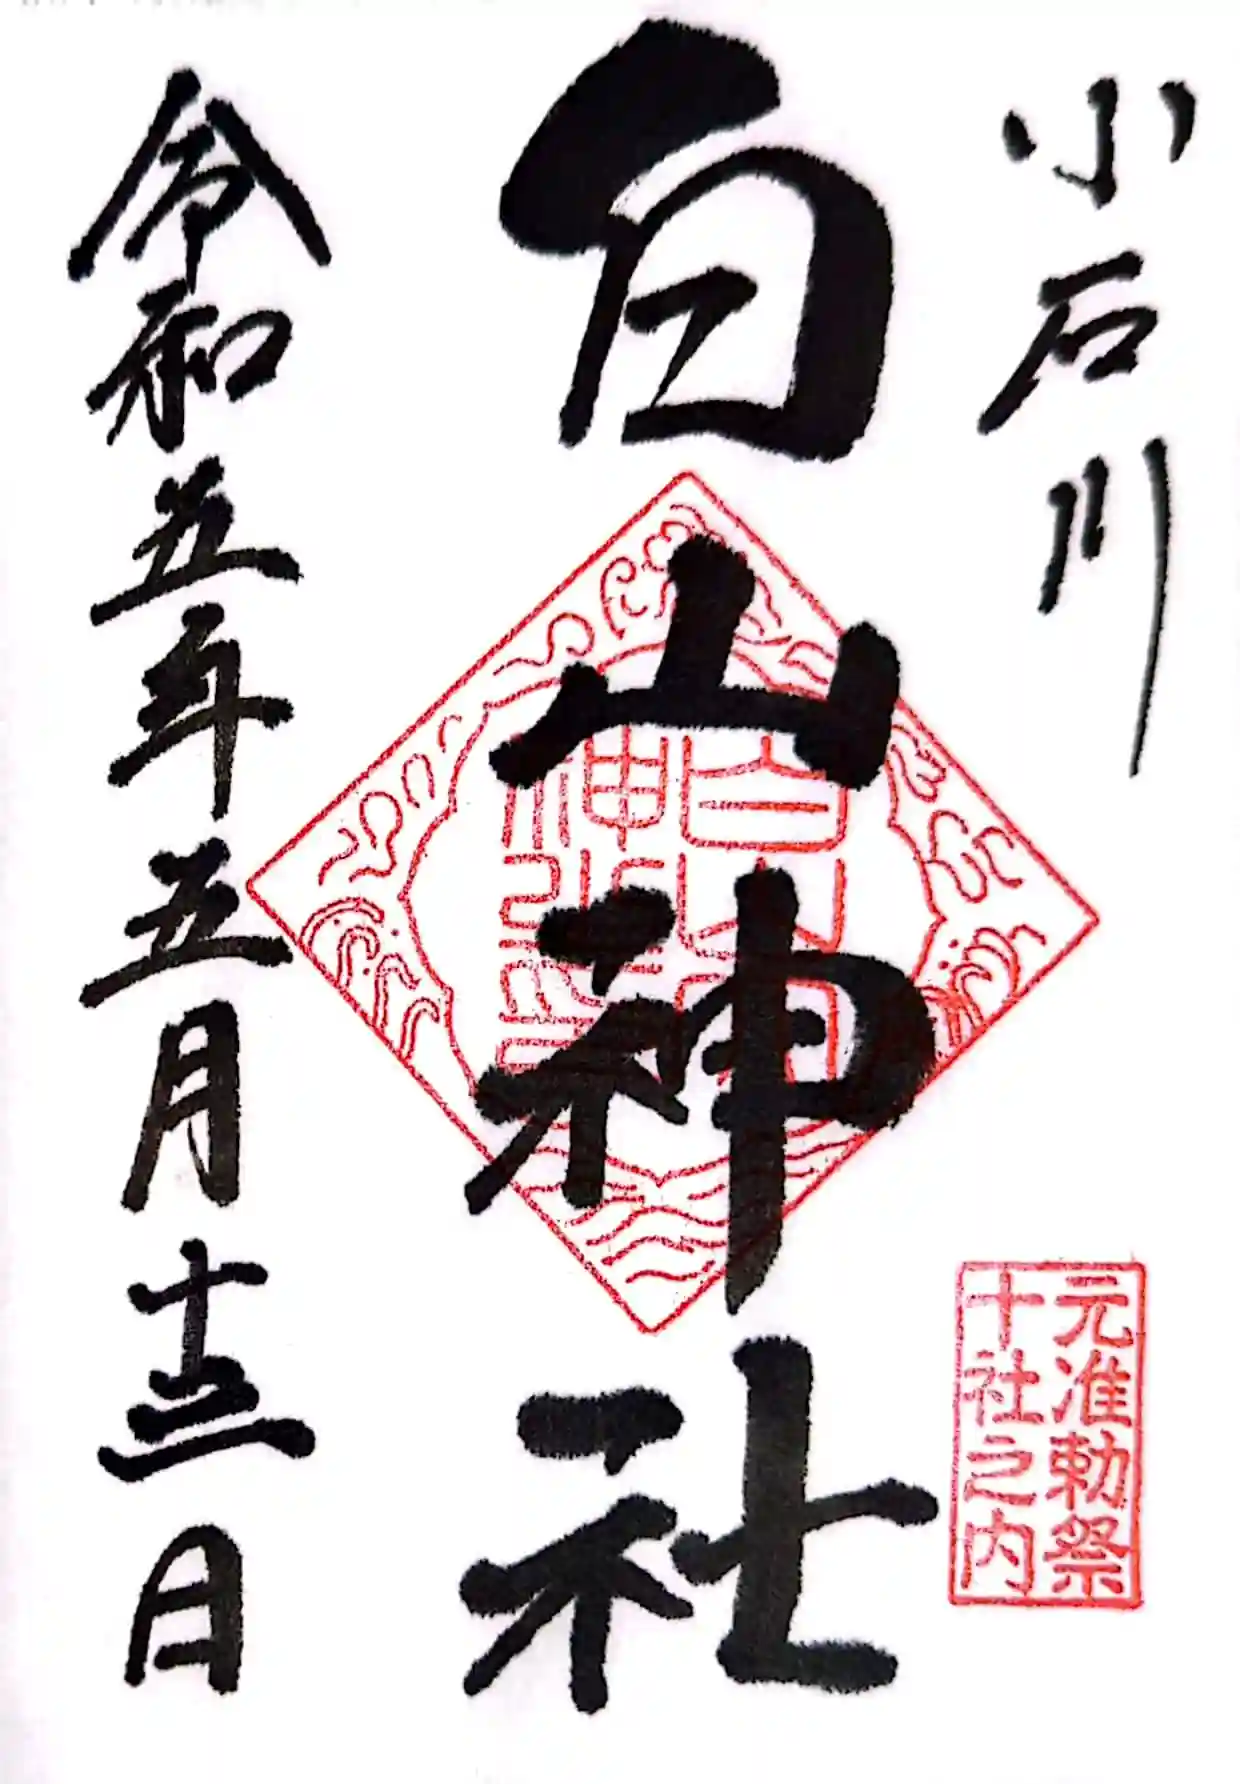 小石川
白山神社
令和五年五月十三日
元准勅祭
十社之内